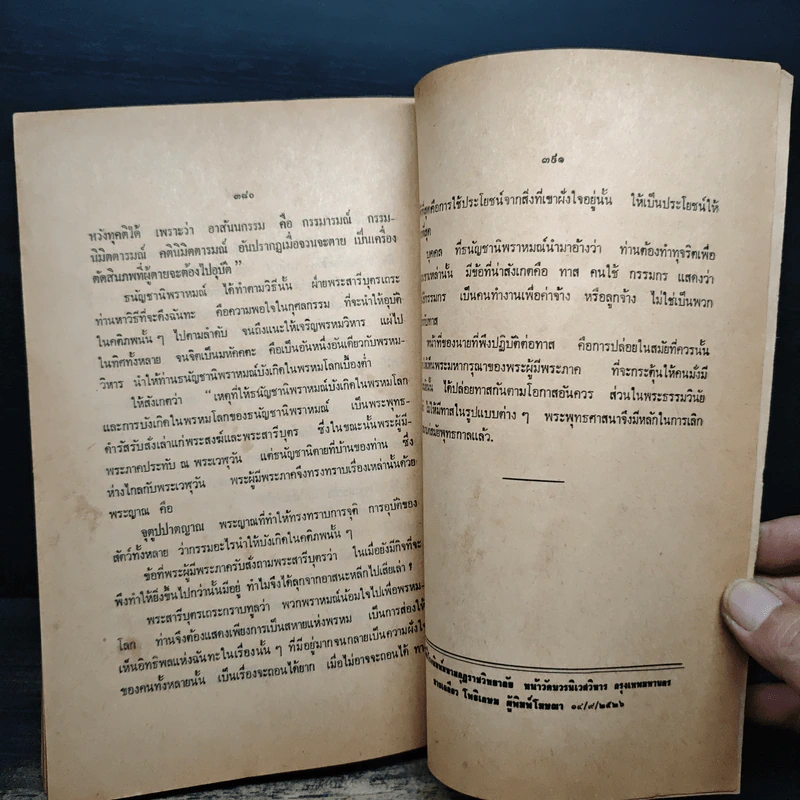 ๓๘๐
หวังทุคติได้ เพราะว่า อาสันนกรรม คือ กรรมารมณ์ กรรม-
นิมิตตารมณ์ คตินิมิตตารมณ์ อันปรากฏเมื่อจวนจะตาย เป็นเครื่อง
ตัดสินภพที่ผู้ตายจะต้องไปอุบัติ"
ธนัญชานิพราหมณ์ ได้ทำตามวิธีนั้น ฝ่ายพระสารีบุตรเถระ
ท่านหาวิธีที่จะดึงฉันทะ คือความพอใจในกุศลกรรม ที่จะนำให้อุบัติ
ในคติภพนั้น ๆ ไปตามลำดับ จนถึงแนะให้เจริญพรหมวิหาร แผ่ไป
ในทิศทั้งหลาย จนจิตเป็นมหัคคตะ คือเป็นอันหนึ่งอันเดียวกับพรหม-
วิหาร นำให้ท่านธนัญชานิพราหมณ์บังเกิดในพรหมโลกเบื้องต่ำ
ให้สังเกตว่า "เหตุที่ให้ธนัญชานิพราหมณ์บังเกิดในพรหมโลก
และการบังเกิดในพรหมโลกของธนัญชานิพราหมณ์ เป็นพระพุทธ-
ดำรัสรับสั่งเล่าแก่พระสงฆ์และพระสารีบุตร ซึ่งในขณะนั้นพระผู้มี-
พระภาคประทับ ณ พระเวฬุวัน แต่ธนัญชานิตายที่บ้านของท่าน ซึ่ง
ห่างไกลกับพระเวฬุวัน พระผู้มีพระภาคจึงทรงทราบเรื่องเหล่านั้นด้วย
พระญาณ คือ
จุตูปปาตญาณ พระญาณที่ทำให้ทรงทราบการจุติ การอุบัติของ
สัตว์ทั้งหลาย ว่ากรรมอะไรนำให้บังเกิดในคติภพนั้น ๆ
ข้อที่พระผู้มีพระภาครับสั่งถามพระสารีบุตรว่า ในเมื่อยังมีกิจที่จะ
พึงทำให้ยิ่งขึ้นไปกว่านั้นมีอยู่ ทำไมจึงได้ลุกจากอาสนะหลีกไปเสียเล่า,
พระสารีบุตรเถระกราบทูลว่า พวกพราหมณ์น้อมใจไปเพื่อพรหม-
โลก ท่านจึงต้องแสดงเพียงการเป็นสหายแห่งพรหม เป็นการส่องให้
เห็นอิทธิพลแห่งฉันทะในเรื่องนั้น ๆ ที่มีอยู่มากจนกลายเป็นความฝังใจ
ของคนทั้งหลายนั้น เป็นเรื่องจะถอนได้ยาก เมื่อไม่อาจจะถอนได้
๓๘๑
ที่สุดคือการใช้ประโยชน์จากสิ่งที่เขาฝังใจอยู่นั้น ให้เป็นประโยชน์ให้
ที่สุด
บุคคล ที่ธนัญชานิพราหมณ์นำมาอ้างว่า ท่านต้องทำทุจริตเพื่อ
เขาเหล่านั้น มีข้อที่น่าสังเกตคือ ทาส คนใช้ กรรมกร แสดงว่า
กรรมกร เป็นคนทำงานเพื่อค่าจ้าง หรือลูกจ้าง ไม่ใช่เป็นพวก
กับทาส
หน้าที่ของนายที่พึงปฏิบัติต่อทาส คือการปล่อยในสมัยที่ควรนั้น
ให้เห็นพระมหากรุณาของพระผู้มีพระภาค ที่จะกระตุ้นให้คนมั่งมี
นั้น ได้ปล่อยทาสกันตามโอกาสอันควร ส่วนในพระธรรมวินัย
ไม่ให้มีทาสในรูปแบบต่าง ๆ พระพุทธศาสนาจึงมีหลักในการเลิก
สมัยพุทธกาลแล้ว.
มหามกุฏราชวิทยาลัย หน้าวัดบวรนิเวศวิหาร กรุงเทพมหานคร
โพธิเกษม ผู้พิมพ์โฆษณา ๑๔/๙/๒๕๒๖